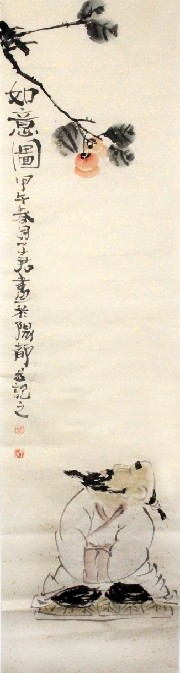 如意圖
甲午春月子君畫於陽都並記之